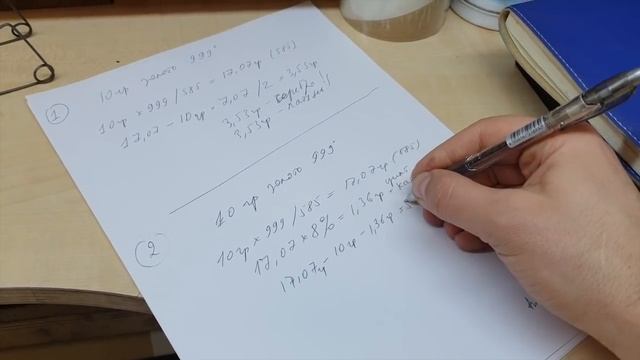 1
10 гр золото 999°
10гр × 999 / 585 = 17,07гр (585)
17,07 - 10гр = 7,07 / 2 = 3,53гр
3,53гр серебро
3,53гр -
2
10 гр золото 999°
10гр × 999 / 585 = 17,07гр (585)
17,07 × 8% = 1,36гр
17,07гр - 10гр - 1,36гр =